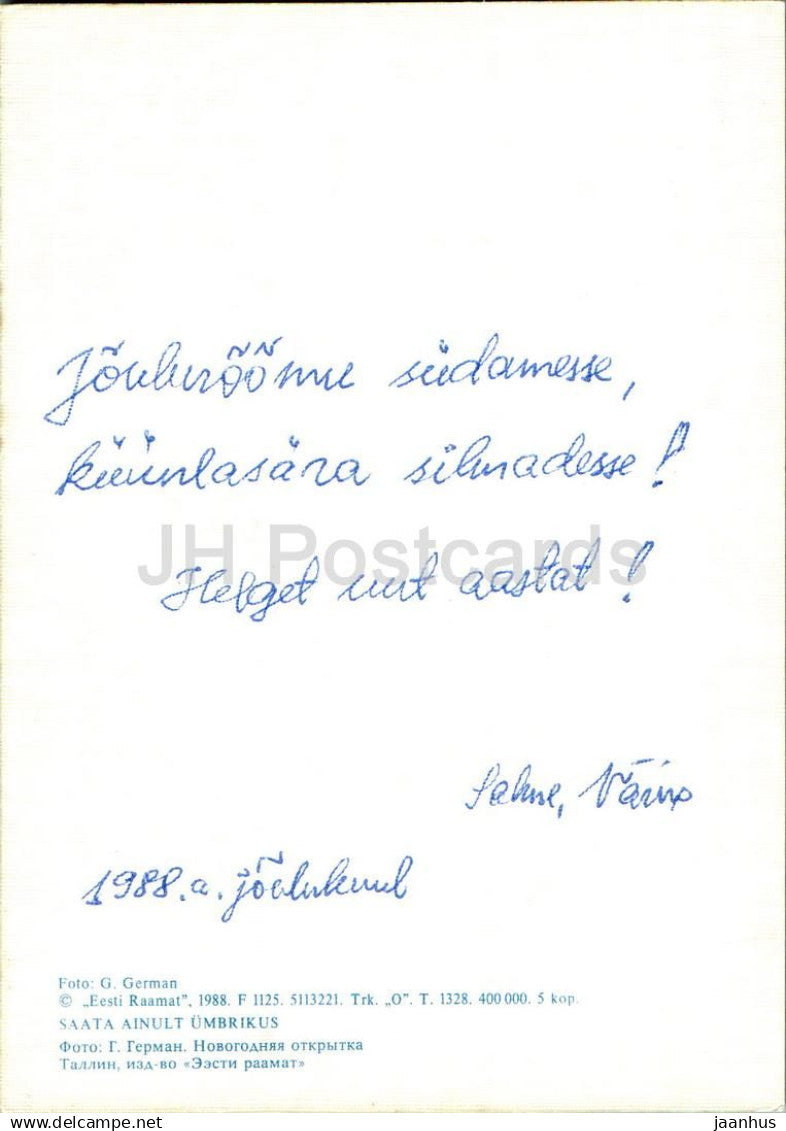 Jõulurõõmu südamesse,
küünlasära silmadesse!
JH Postcards
Helget uut aastat!
Salme, Väino
1988.a. jõulukuul
Foto: G. German
© „Eesti Raamat”, 1988. F 1125. 5113221. Trk. „O”. T. 1328. 400 000. 5 kop.
SAATA AINULT ÜMBRIKUS
Фото: Г. Герман. Новогодняя открытка
Таллин, изд-во «Ээсти раамат»
jaanhus